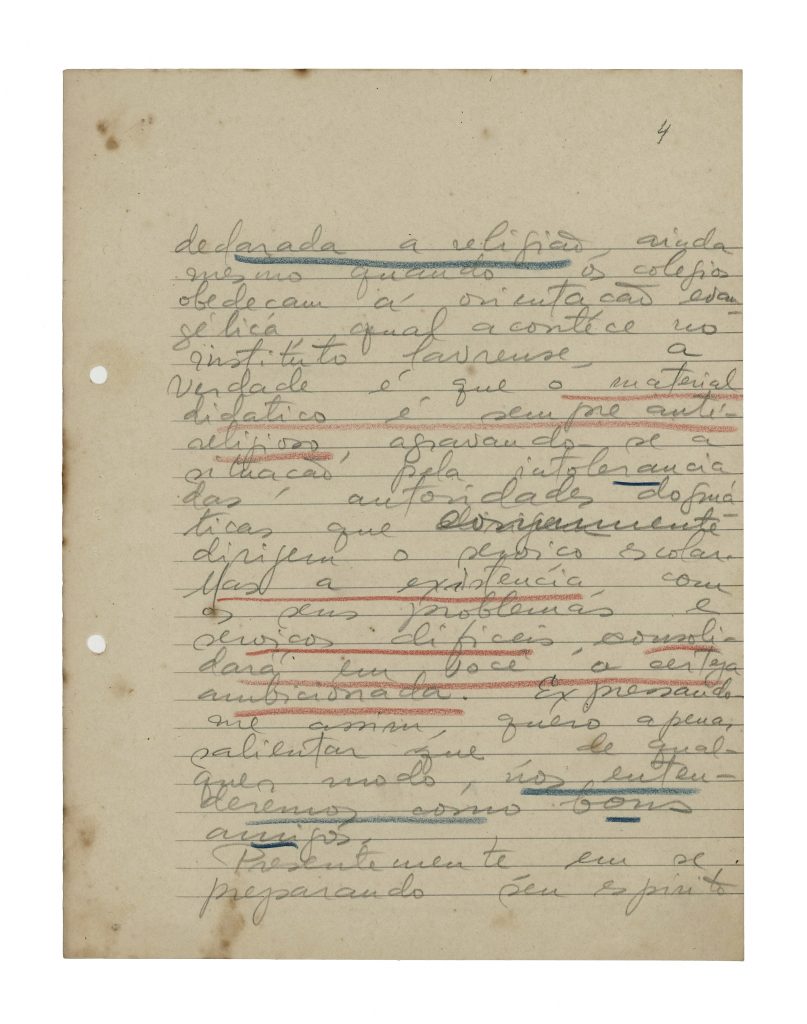 4
declarada a religião, ainda
mesmo quando os colegios
obedeçam á orientação evan
gélica qual acontéce no
instituto lavrense, a
verdade é que o material
didático é sempre anti-
religioso, agravando-se a
situação pela intolerancia
das autoridades dogmá
ticas que
dirigem o serviço escolar.
Mas a existência com
os seus problemas e
serviços dificeis consoli-
dará em você a certeza
ambicionada. Expressando-
me assim, quero apenas
salientar que de qual-
quer modo, nos enten-
deremos como bons
amigos.
Presentemente em se
preparando seu espirito